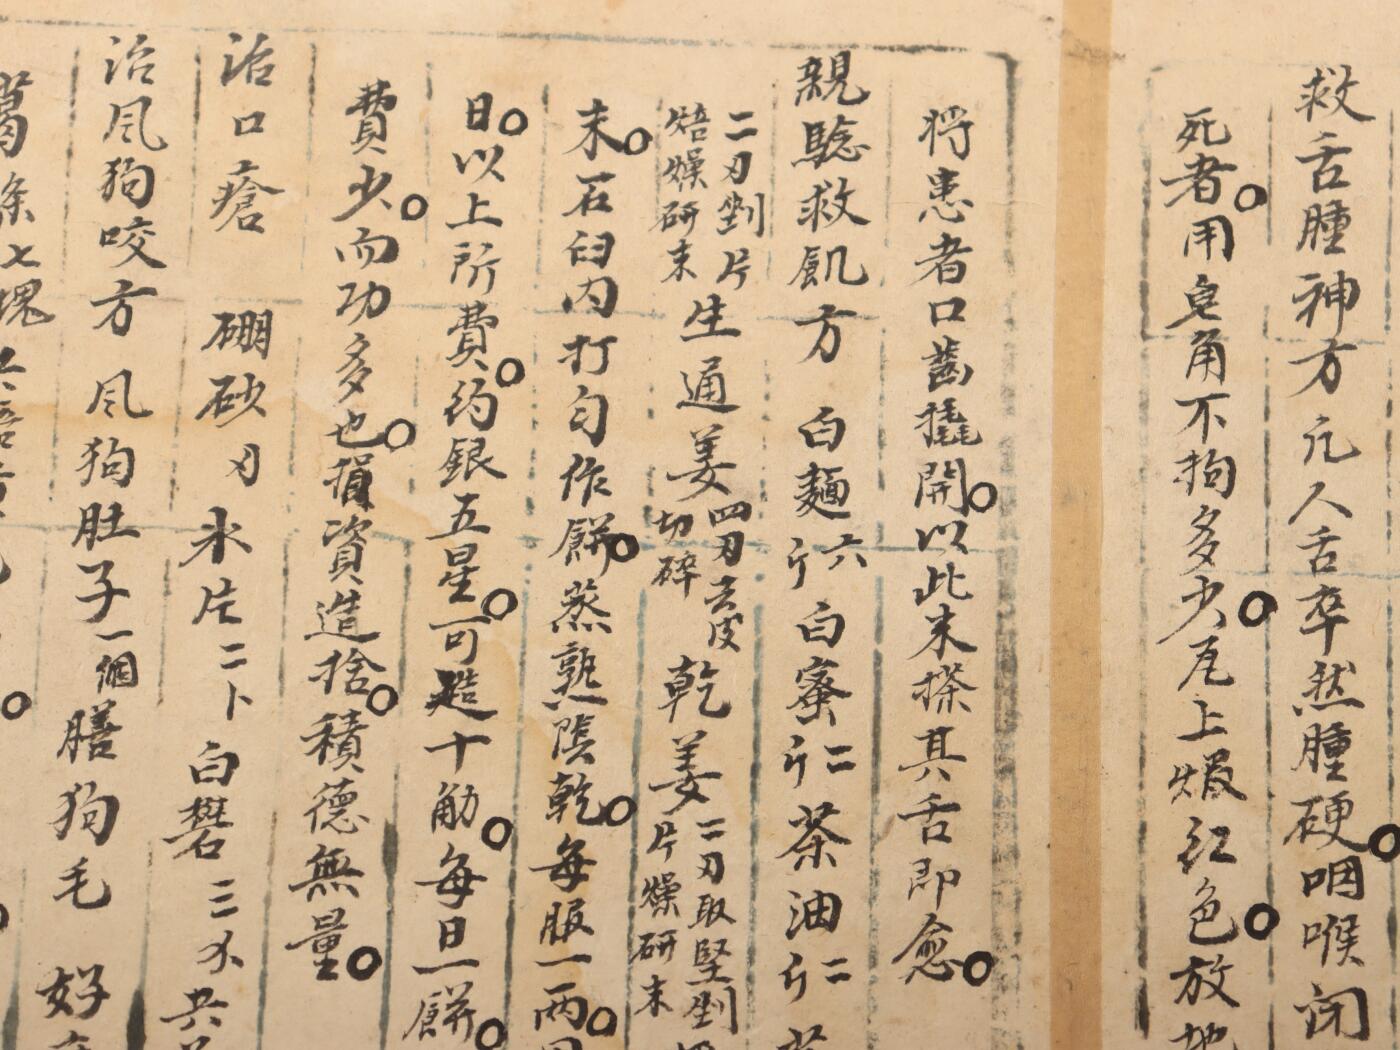 救舌腫神方 凢人舌卒然腫硬咽喉閉
死者用皂角不拘多少瓦上煆紅色放地
將患者口齒撬開以此末搽其舌即愈
親騐救飢方 白麵六斤白蜜二斤茶油二斤
二刃剉片焙燥研末生通姜四刃去皮切碎乾姜二刃取堅剉片燥研末
末石臼内打匀作餅蒸熟陰乾每服一兩
日以上所費約銀五星可造十觔每日一餅
費少而功多也損資造捨積德無量
治口瘡 硼砂刃氷片二卜白礬三
治風狗咬方 風狗肚子一個膳狗毛 好
葛 七塊